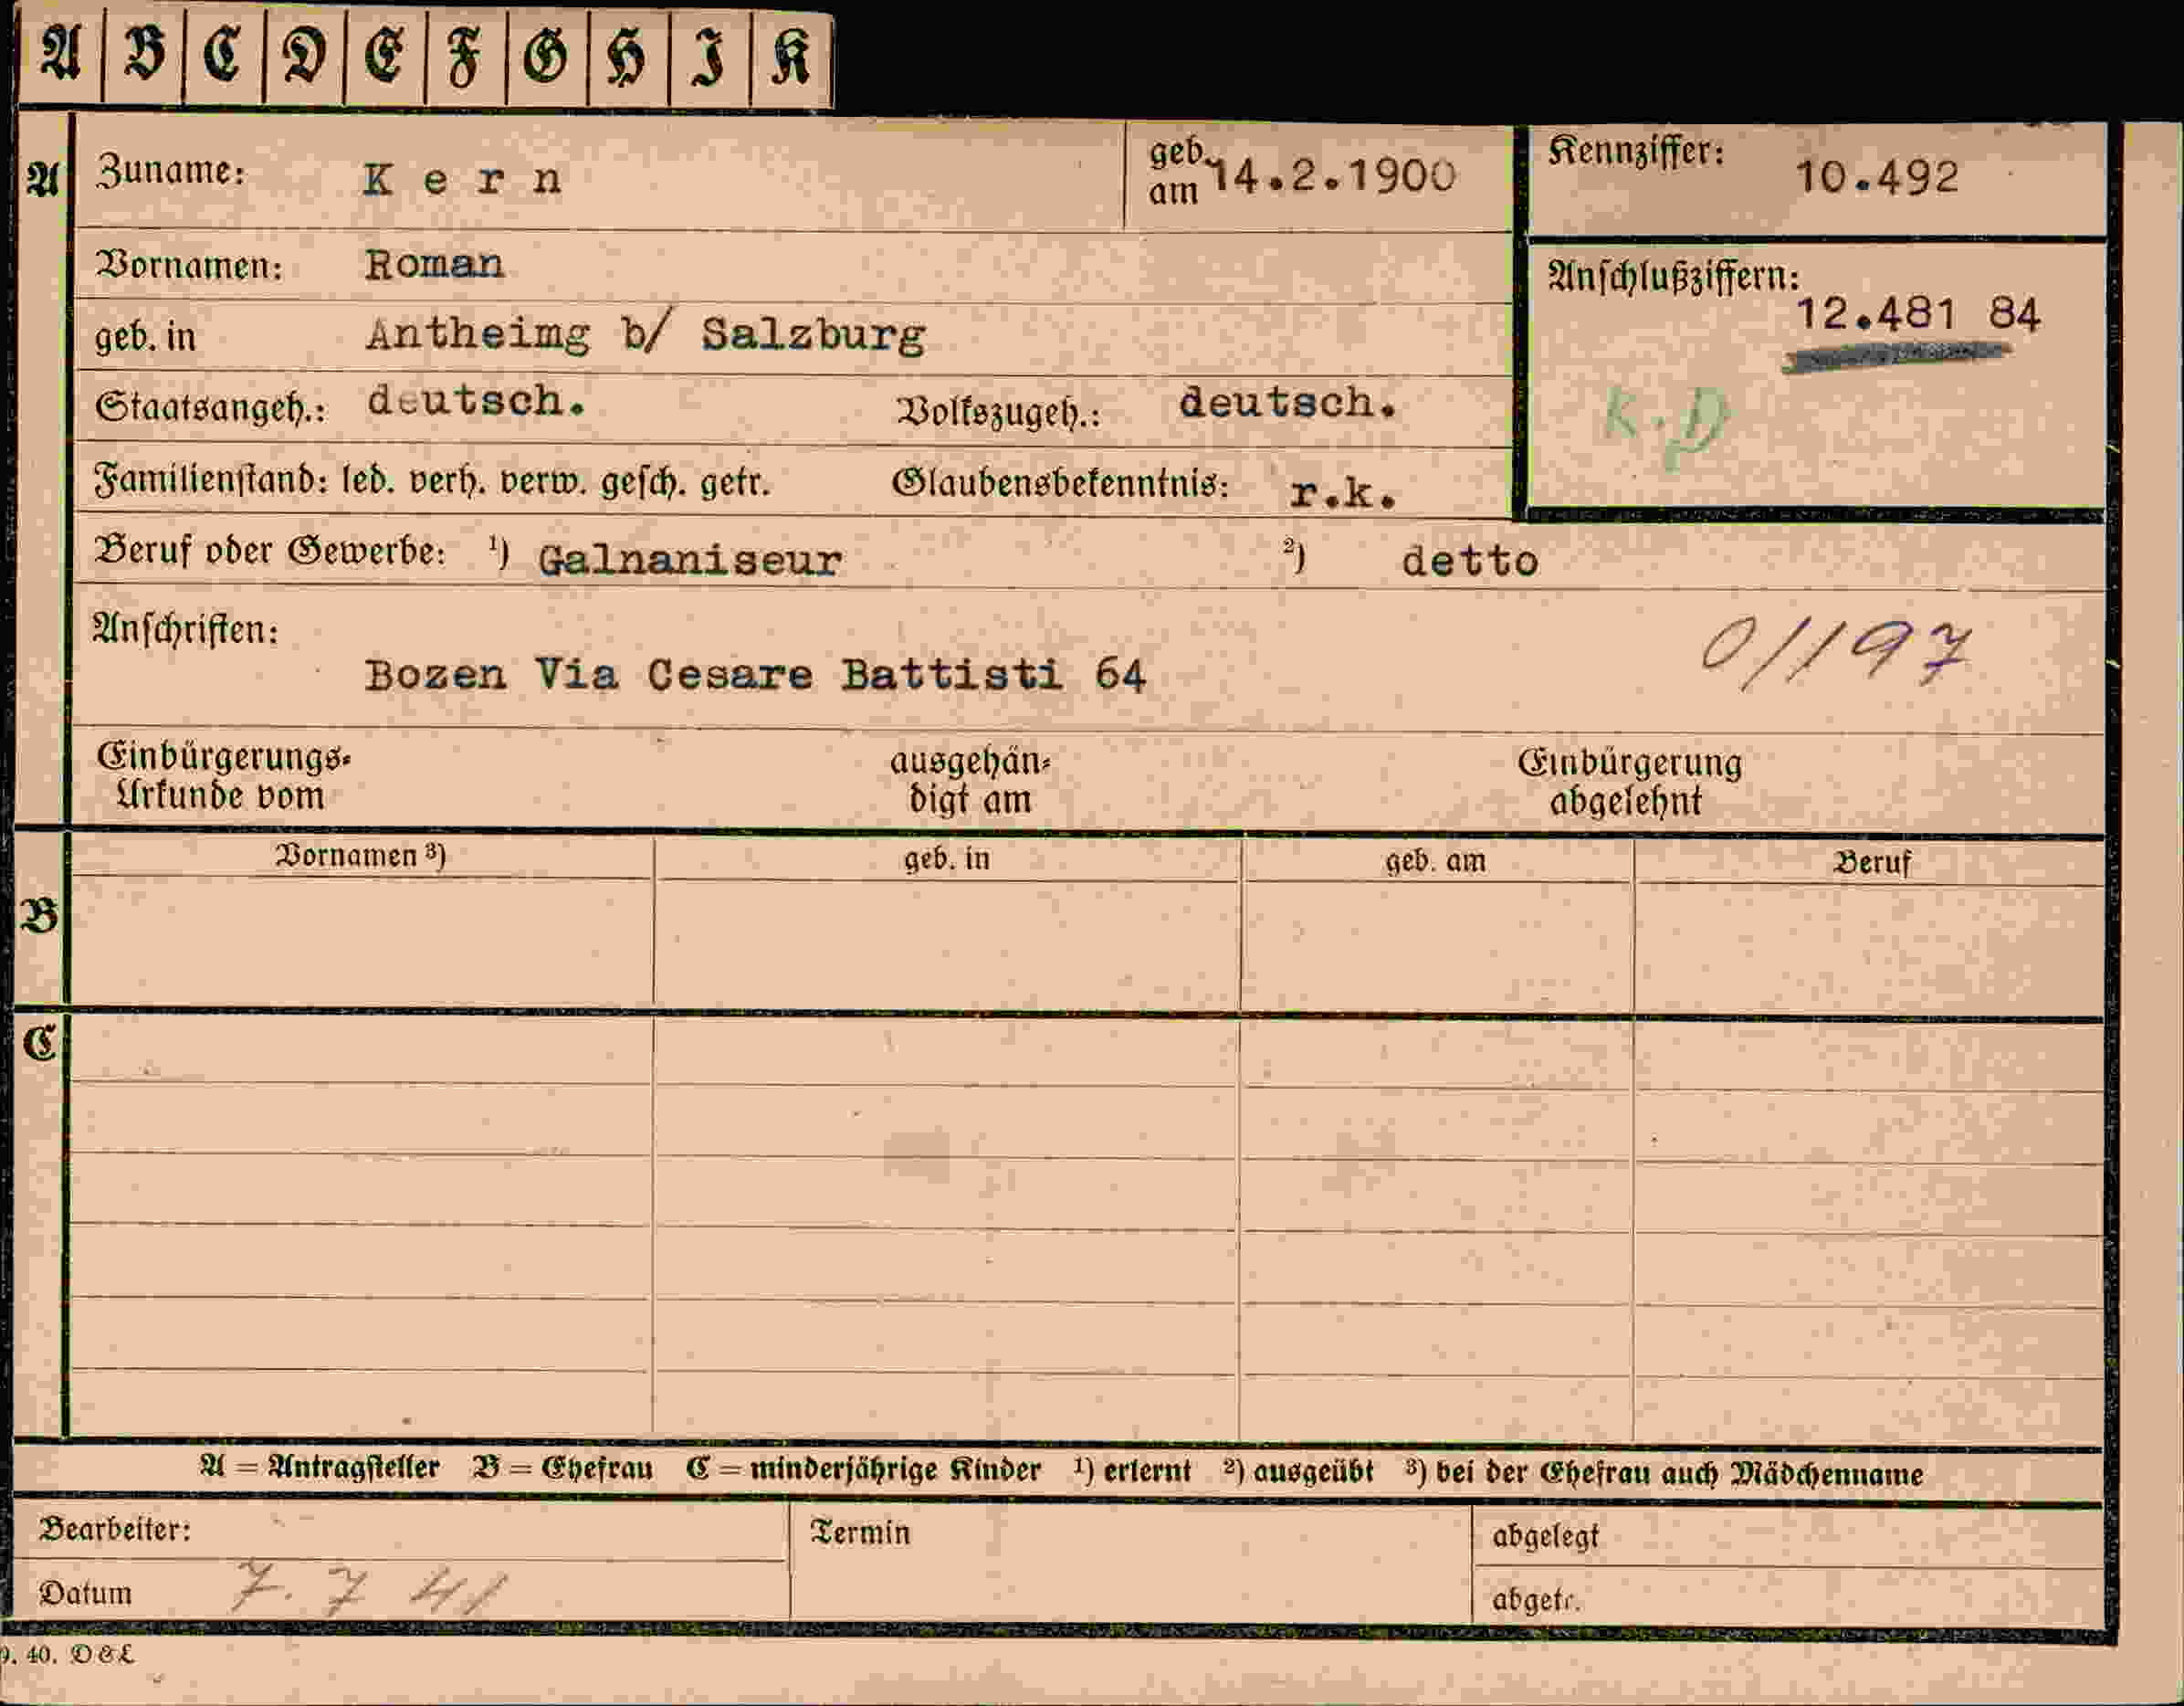 A B C D E F G H I K
A Zuname: Kern geb. am 14.2.1900 Kennziffer: 10.492
Vornamen: Roman
Anschlußziffern: 12.481 84
geb. in Antheimg b/ Salzburg
Staatsangeh.: deutsch. Volkszugeh.: deutsch.
K.D
Familienstand: led. verh. verw. gesch. getr. Glaubensbekenntnis: r.k.
Beruf oder Gewerbe: ¹) Galnaniseur ²) detto
Anschriften:
0/197
Bozen Via Cesare Battisti 64
Einbürgerungs- ausgehän- Einbürgerung
Urkunde vom digt am abgelehnt
Vornamen ³) geb. in geb. am Beruf
B
C
A = Antragsteller B = Ehefrau C = minderjährige Kinder ¹) erlernt ²) ausgeübt ³) bei der Ehefrau auch Mädchenname
Bearbeiter: Termin abgelegt
Datum 7. 7 41 abgetr.
9. 40. D&L